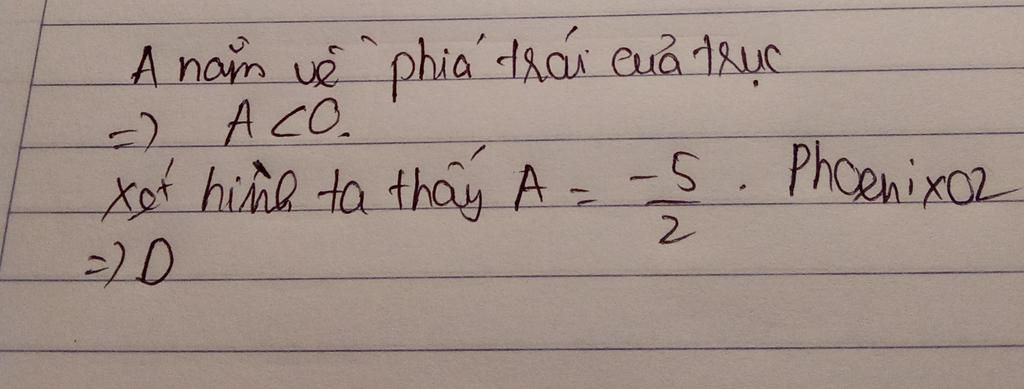 A nằm về phía trái của trục
=> A < 0.
Xét hình ta thấy A = -5/2 . Phoenix02
=> D